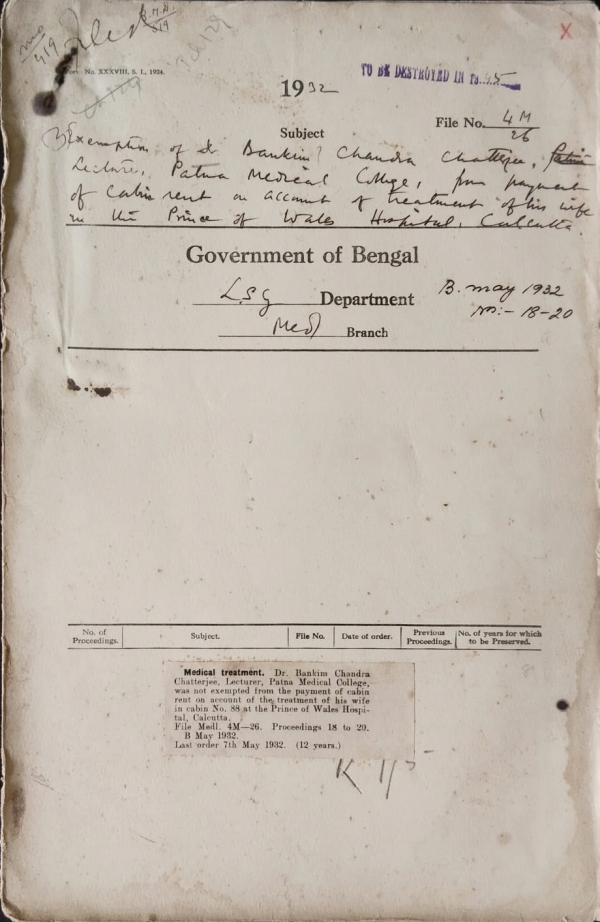 Form No. XXXVIII, S. I., 1924.
TO BE DESTROYED IN 19
1932
File No. 4M/26
Subject
Exemption of Dr Bankim Chandra Chatterjee,
Lecturer, Patna Medical College, from payment
of cabin rent on account of treatment of his wife
in the Prince of Wales Hospital, Calcutta.
Government of Bengal
L.S.G Department
B. May 1932
No:- 18-20
Med Branch
No. of Proceedings. Subject. File No. Date of order. Previous Proceedings. No. of years for which to be Preserved.
Medical treatment. Dr. Bankim Chandra
Chatterjee, Lecturer, Patna Medical College,
was not exempted from the payment of cabin
rent on account of the treatment of his wife
in cabin No. 88 at the Prince of Wales Hospi-
tal, Calcutta.
File Medl. 4M—26. Proceedings 18 to 20.
B May 1932.
Last order 7th May 1932. (12 years.)